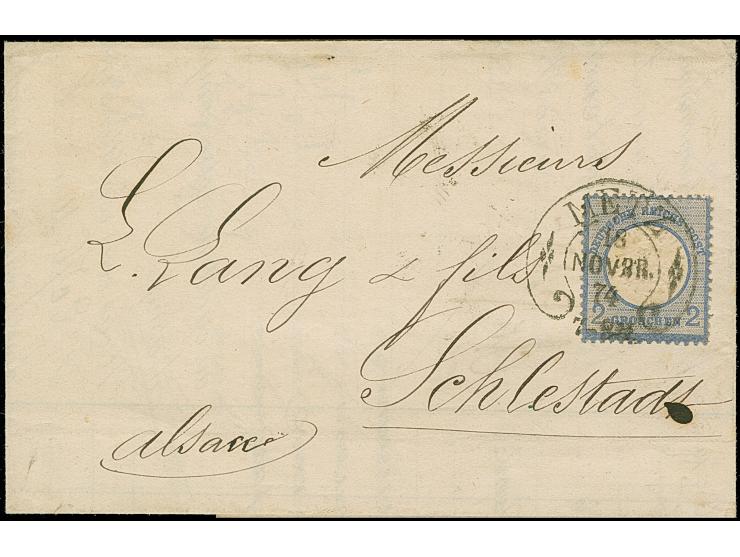 Messieurs
L. Lang & fils
Schlestadt
alsace
METZ
18
NOVBR.
74
DEUTSCHE REICHS-POST
2 GROSCHEN 2